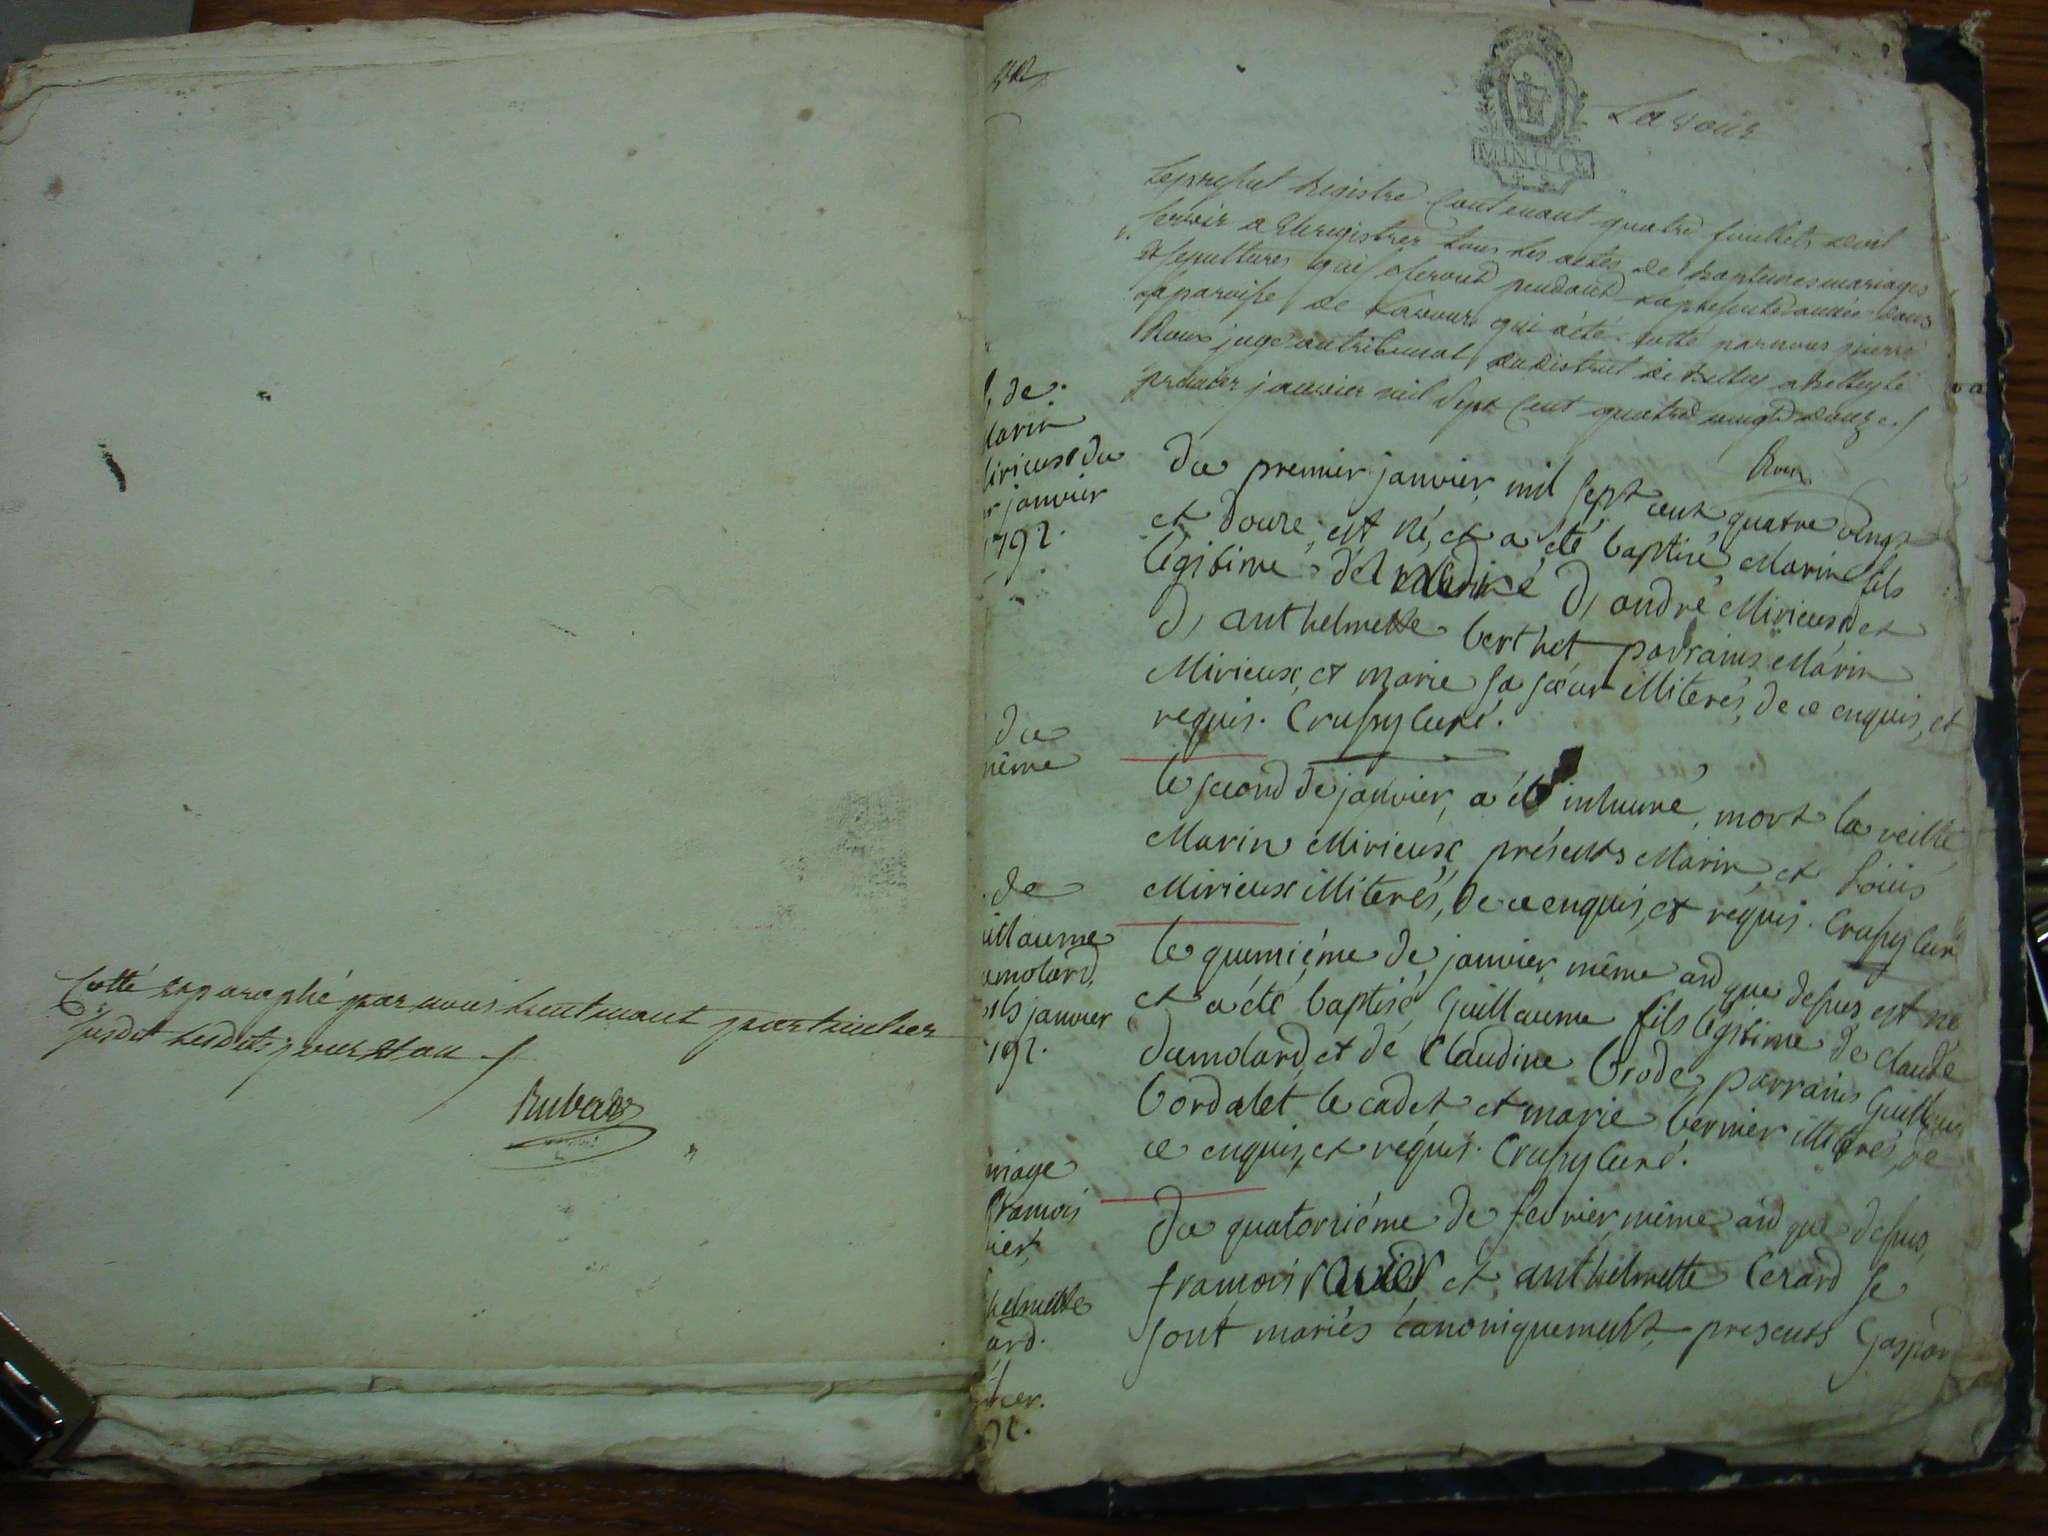 Cotté et paraphé par nous lieutenant particulier
susdit lesdits jour et an
Rubat
Lavour
MINUTE
Le present Registre Contenant quatre feuillets doit
servir a Enregistrer tous les actes de baptemes mariages
et sepultures qui se feront pendant la presente année dans
la paroisse de Lavour qui a été cotté par nous pierre
Roux juge au tribunal du district de Belley a Belley le
premier janvier mil sept Cent quatre vingt douze
Roux
, de
Marin
Mirieux du
er janvier
1792.
du premier janvier, mil sept cent quatre vingt
et douze, est né, et a été baptisé, Marin fils
légitime d'andré Mirieux et
d'anthelmette berthet parrains Marin
Mirieux, et marie sa sœur illiterés, de ce enquis, et
requis. Crussy curé.
du
même
le second de janvier, a été inhumé, mort la veille
Marin Mirieux, présents Marin et Louis
Mirieux illiterés, de ce enquis, et requis. Crussy curé
de
uillaume
umolard,
janvier
1792.
le quinziéme de janvier même an que dessus est né
et a été baptisé Guillaume fils légitime de claude
dumolard, et de Claudine brode, parrains Guillaume
bordalet le cadet et marie bernier illiterés, de
ce enquis, et requis. Crussy curé.
riage
françois
vier,
helmette
ard.
du quatorziéme de fevrier, même an que dessus,
françois ravier, et, anthelmette Cerard se
sont mariés canoniquement, presents Gaspar